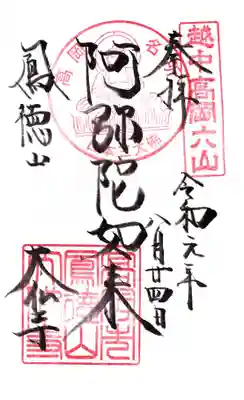 越中高岡六山
奉拝
令和元年
八月廿四日
阿弥陀如来
鳳徳山
大仏寺